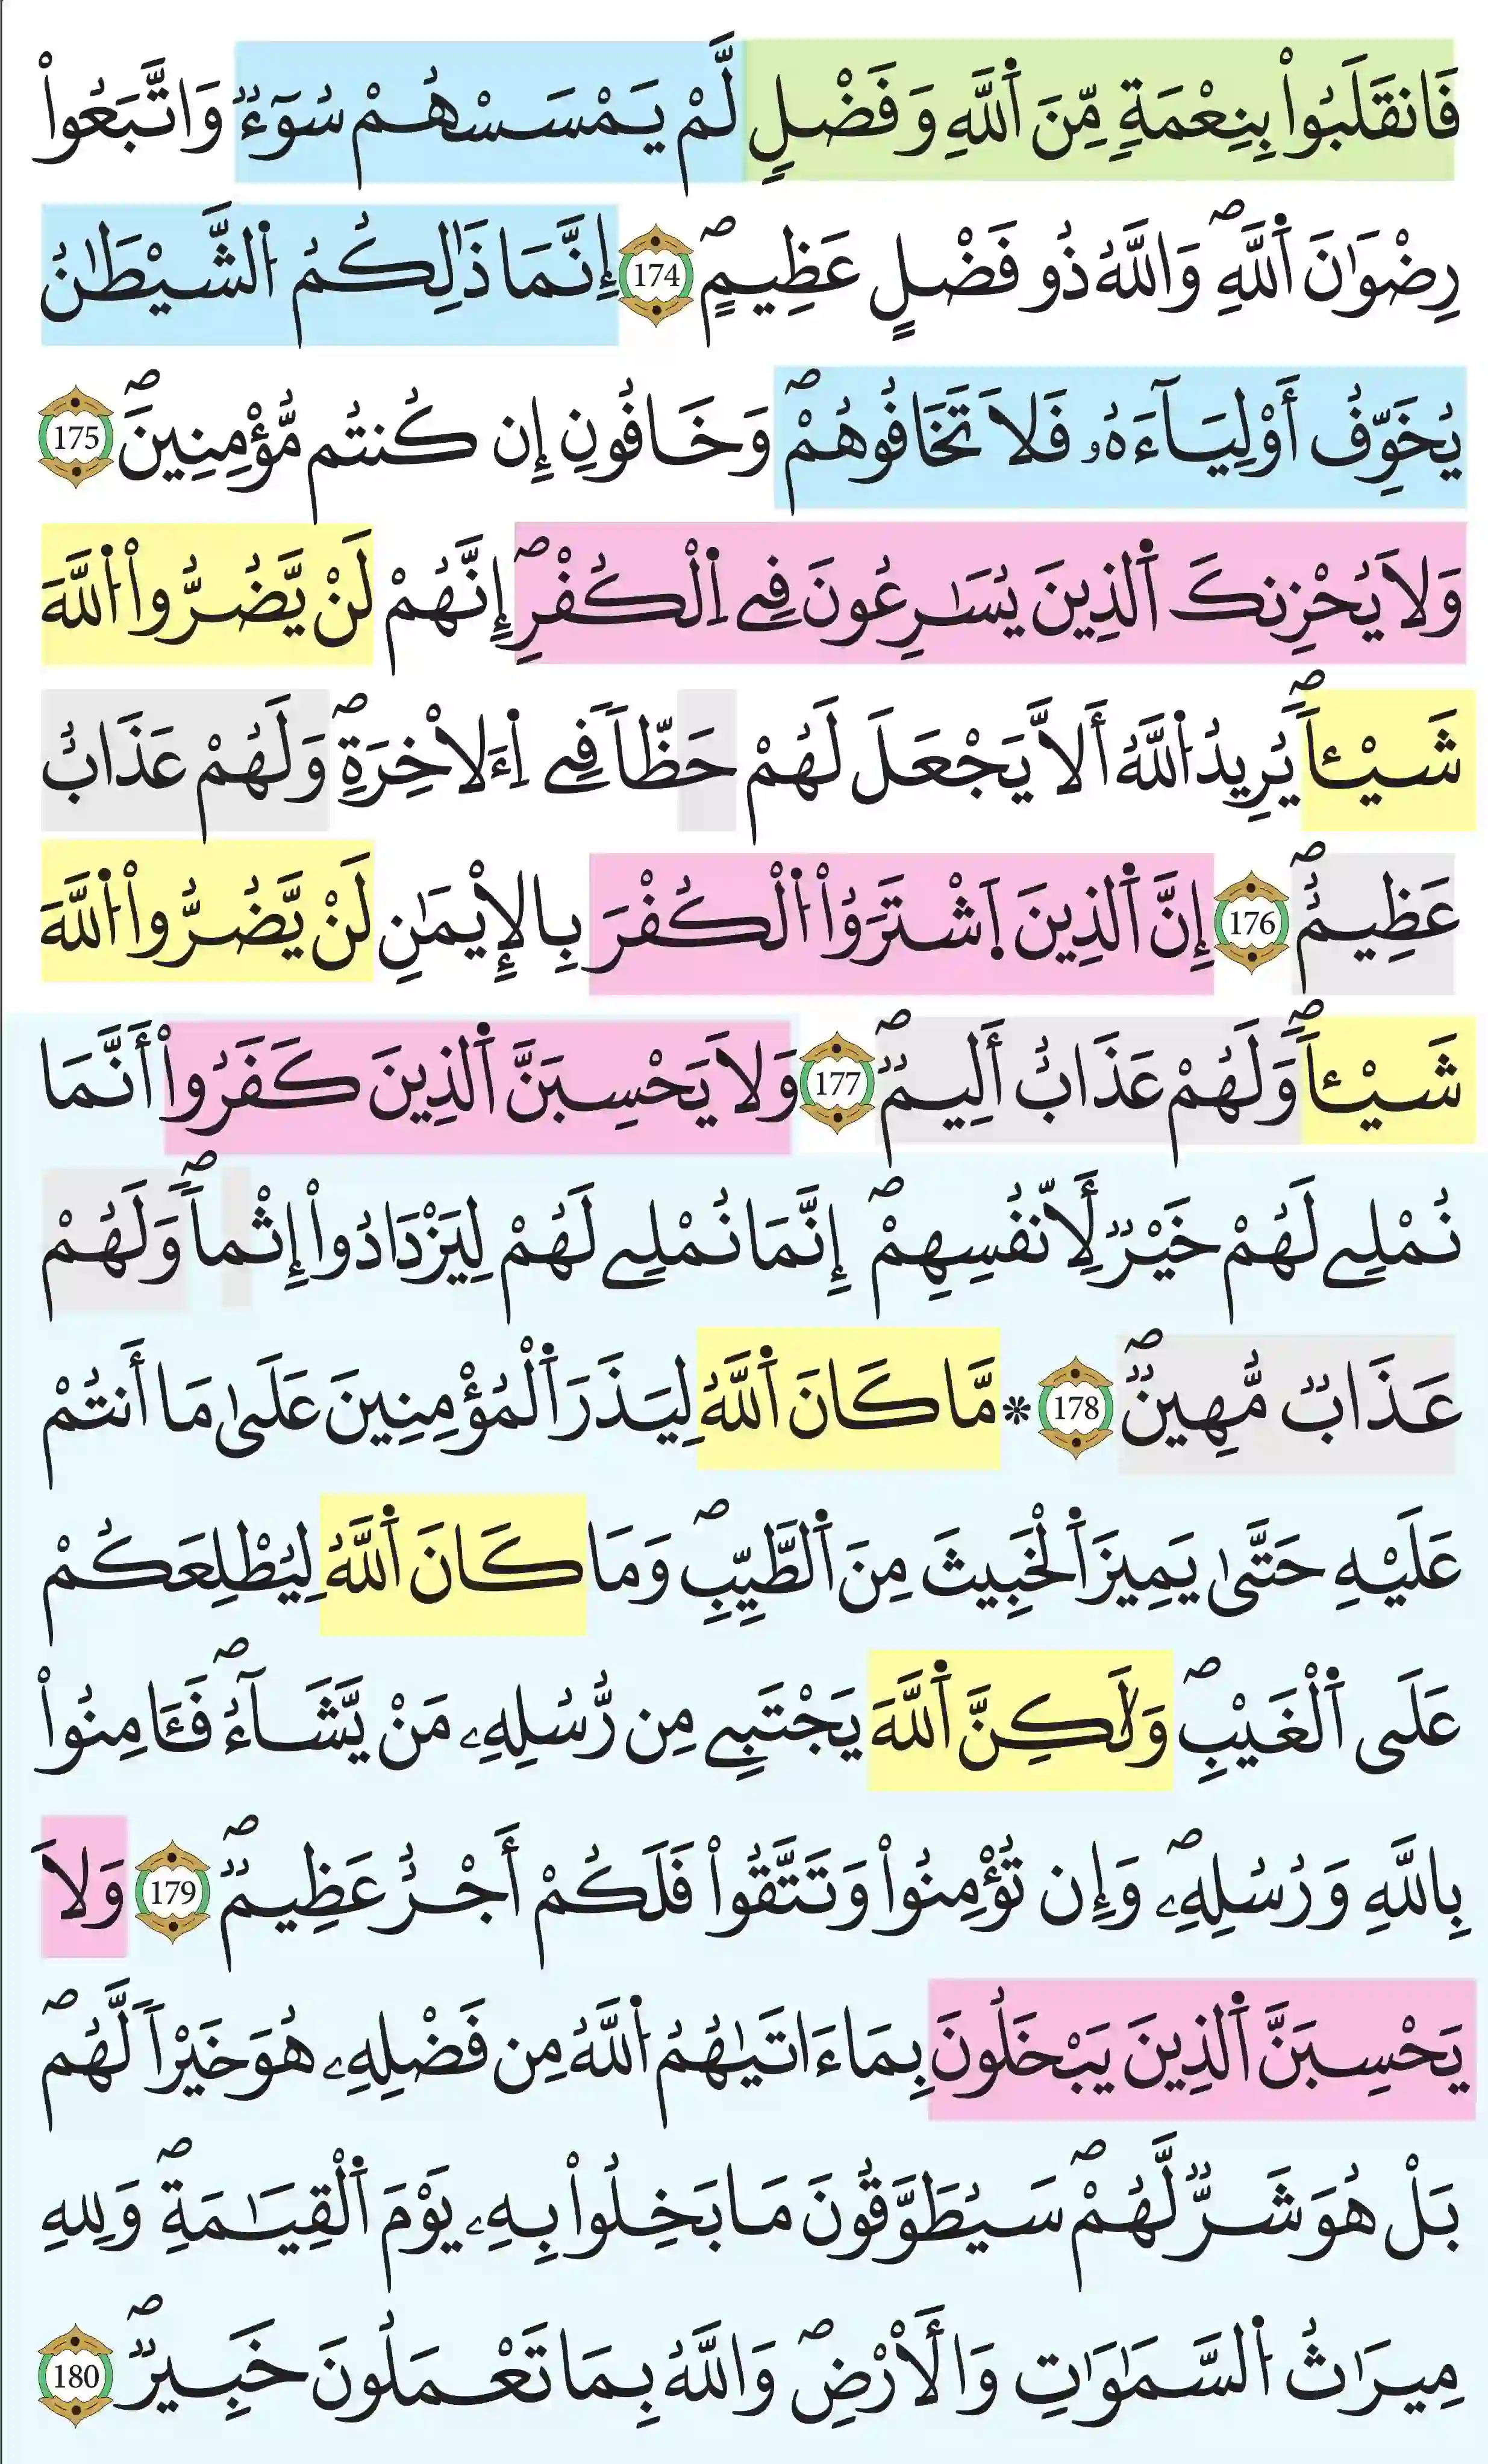 فَانقَلَبُواْ بِنِعْمَةٖ مِّنَ اَ۬للَّهِ وَفَضْلٖ لَّمْ يَمْسَسْهُمْ سُوٓءٞ وَاتَّبَعُواْ
رِضْوَٰنَ اَ۬للَّهِۖ وَاللَّهُ ذُو فَضْلٍ عَظِيمٍۖ 174 إِنَّمَا ذَٰلِكُمُ اُ۬لشَّيْطَٰنُ
يُخَوِّفُ أَوْلِيَآءَهُۥ فَلَا تَخَافُوهُمْۖ وَخَافُونِ إِن كُنتُم مُّؤْمِنِينَۖ 175
وَلَا يُحْزِنكَ اَ۬لذِينَ يُسَٰرِعُونَ فِے اِ۬لْكُفْرِۖ إِنَّهُمْ لَنْ يَّضُرُّواْ اُ۬للَّهَ
شَيْـٔاٗۖ يُرِيدُ اُ۬للَّهُ أَلَّا يَجْعَلَ لَهُمْ حَظّاٗ فِے اِ۬ءَلَاخِرَةِۖ وَلَهُمْ عَذَابٌ
عَظِيمٌۖ 176 إِنَّ اَ۬لذِينَ اَ۪شْتَرَوُاْ اُ۬لْكُفْرَ بِالِايْمَٰنِ لَنْ يَّضُرُّواْ اُ۬للَّهَ
شَيْـٔاٗۖ وَلَهُمْ عَذَابٌ أَلِيمٞۖ 177 وَلَا يَحْسِبَنَّ اَ۬لذِينَ كَفَرُواْ أَنَّمَا
نُمْلِے لَهُمْ خَيْرٞ لِّأَنفُسِهِمْۖ إِنَّمَا نُمْلِے لَهُمْ لِيَزْدَادُواْ إِثْماٗۖ وَلَهُمْ
عَذَابٞ مُّهِينٞۖ 178 * مَّا كَانَ اَ۬للَّهُ لِيَذَرَ اَ۬لْمُؤْمِنِينَ عَلَىٰ مَا أَنتُمْ
عَلَيْهِ حَتَّىٰ يَمِيزَ اَ۬لْخَبِيثَ مِنَ اَ۬لطَّيِّبِۖ وَمَا كَانَ اَ۬للَّهُ لِيُطْلِعَكُمْ
عَلَى اَ۬لْغَيْبِۖ وَلَٰكِنَّ اَ۬للَّهَ يَجْتَبِے مِن رُّسُلِهِۦ مَنْ يَّشَآءُۖ فَـَٔامِنُواْ
بِاللَّهِ وَرُسُلِهِۦۖ وَإِن تُؤْمِنُواْ وَتَتَّقُواْ فَلَكُمْ أَجْرٌ عَظِيمٞۖ 179 وَلَا
يَحْسِبَنَّ اَ۬لذِينَ يَبْخَلُونَ بِمَا ءَاتَيٰهُمُ اُ۬للَّهُ مِن فَضْلِهِۦ هُوَ خَيْراٗ لَّهُمۖ
بَلْ هُوَ شَرّٞ لَّهُمْۖ سَيُطَوَّقُونَ مَا بَخِلُواْ بِهِۦ يَوْمَ اَ۬لْقِيَٰمَةِۖ وَلِلهِ
مِيرَٰثُ اُ۬لسَّمَٰوَٰتِ وَالْأَرْضِۖ وَاللَّهُ بِمَا تَعْمَلُونَ خَبِيرٞۖ 180